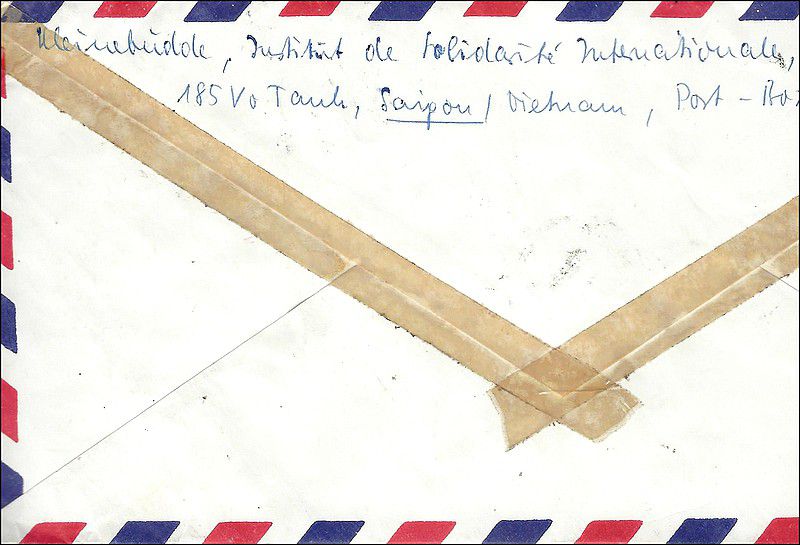 Kleinebudde, Institut de Solidarité Internationale,
185 Vo Tanh, Saigon / Vietnam, Post - Bo